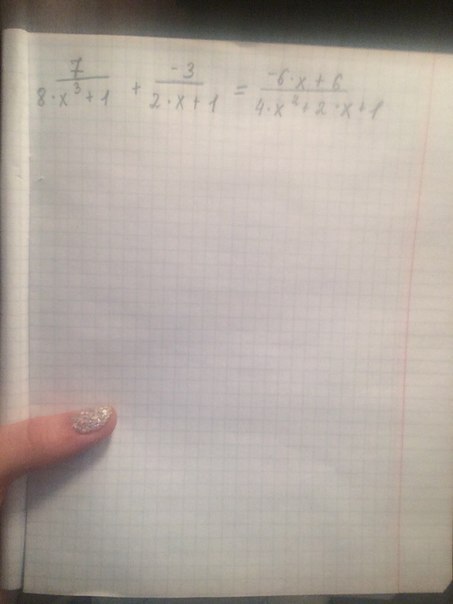 7/(8·x³+1) + -3/(2·x+1) = (-6·x+6)/(4·x²+2·x+1)